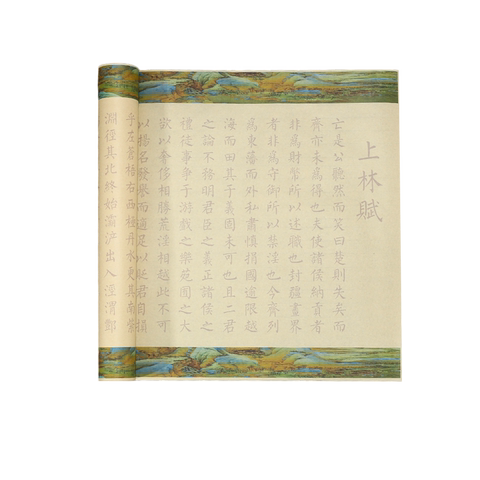 上林賦
亡是公聽然而笑曰楚則失矣而
齊亦未為得也夫使諸侯納貢者
非為財幣所以述職也封疆畫界
者非為守御所以禁淫也今齊列
為東藩而外私肅慎捐國逾限越
海而田其于義固未可也且二君
之論不務明君臣之義正諸侯之
禮徒事爭于游戲之樂苑囿之大
欲以奢侈相勝荒淫相越此不可
以揚名發譽而適足以貶君自損
乎左蒼梧右西極丹水更其南紫
淵徑其北終始灞滻出入涇渭鄷